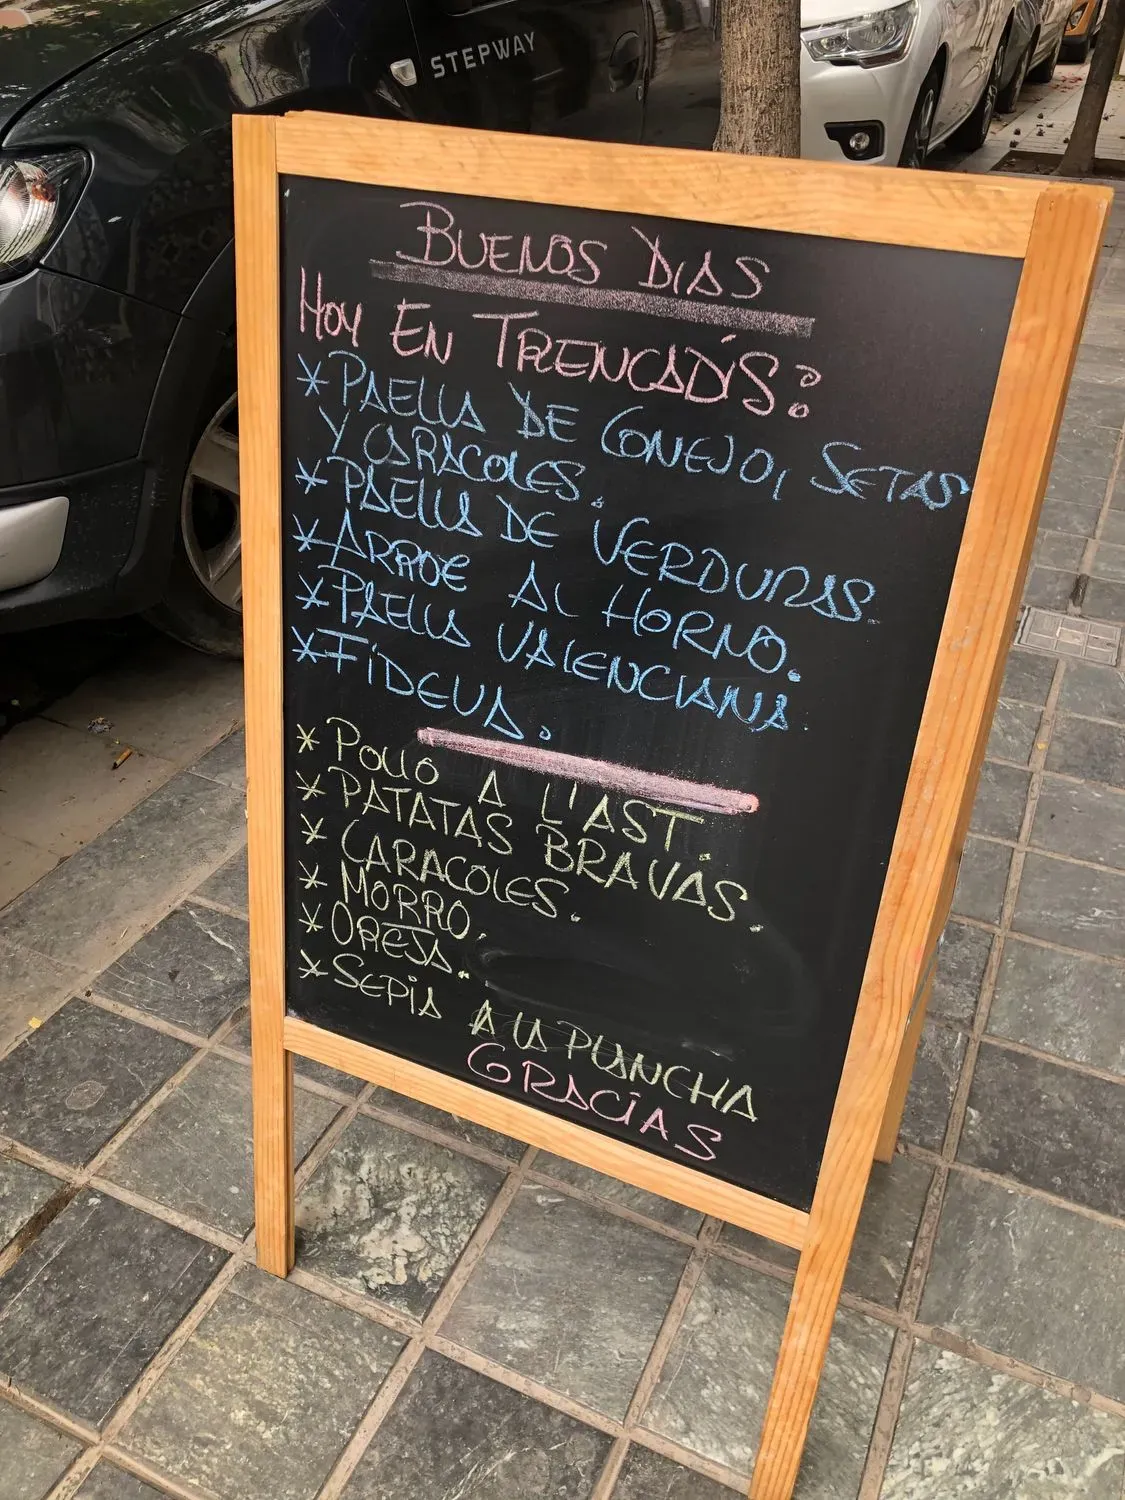 STEPWAY
BUENOS DIAS
HOY EN TRENCADÍS:
*PAELLA DE CONEJO, SETAS
Y CARACOLES.
*PAELLA DE VERDURAS.
*ARROE AL HORNO.
*PAELLA VALENCIANA.
*FIDEUA.
* POLLO A L'AST.
* PATATAS BRAVAS.
* CARACOLES.
* MORRO.
*OREJA.
*SEPIA A LA PLANCHA
GRACIAS